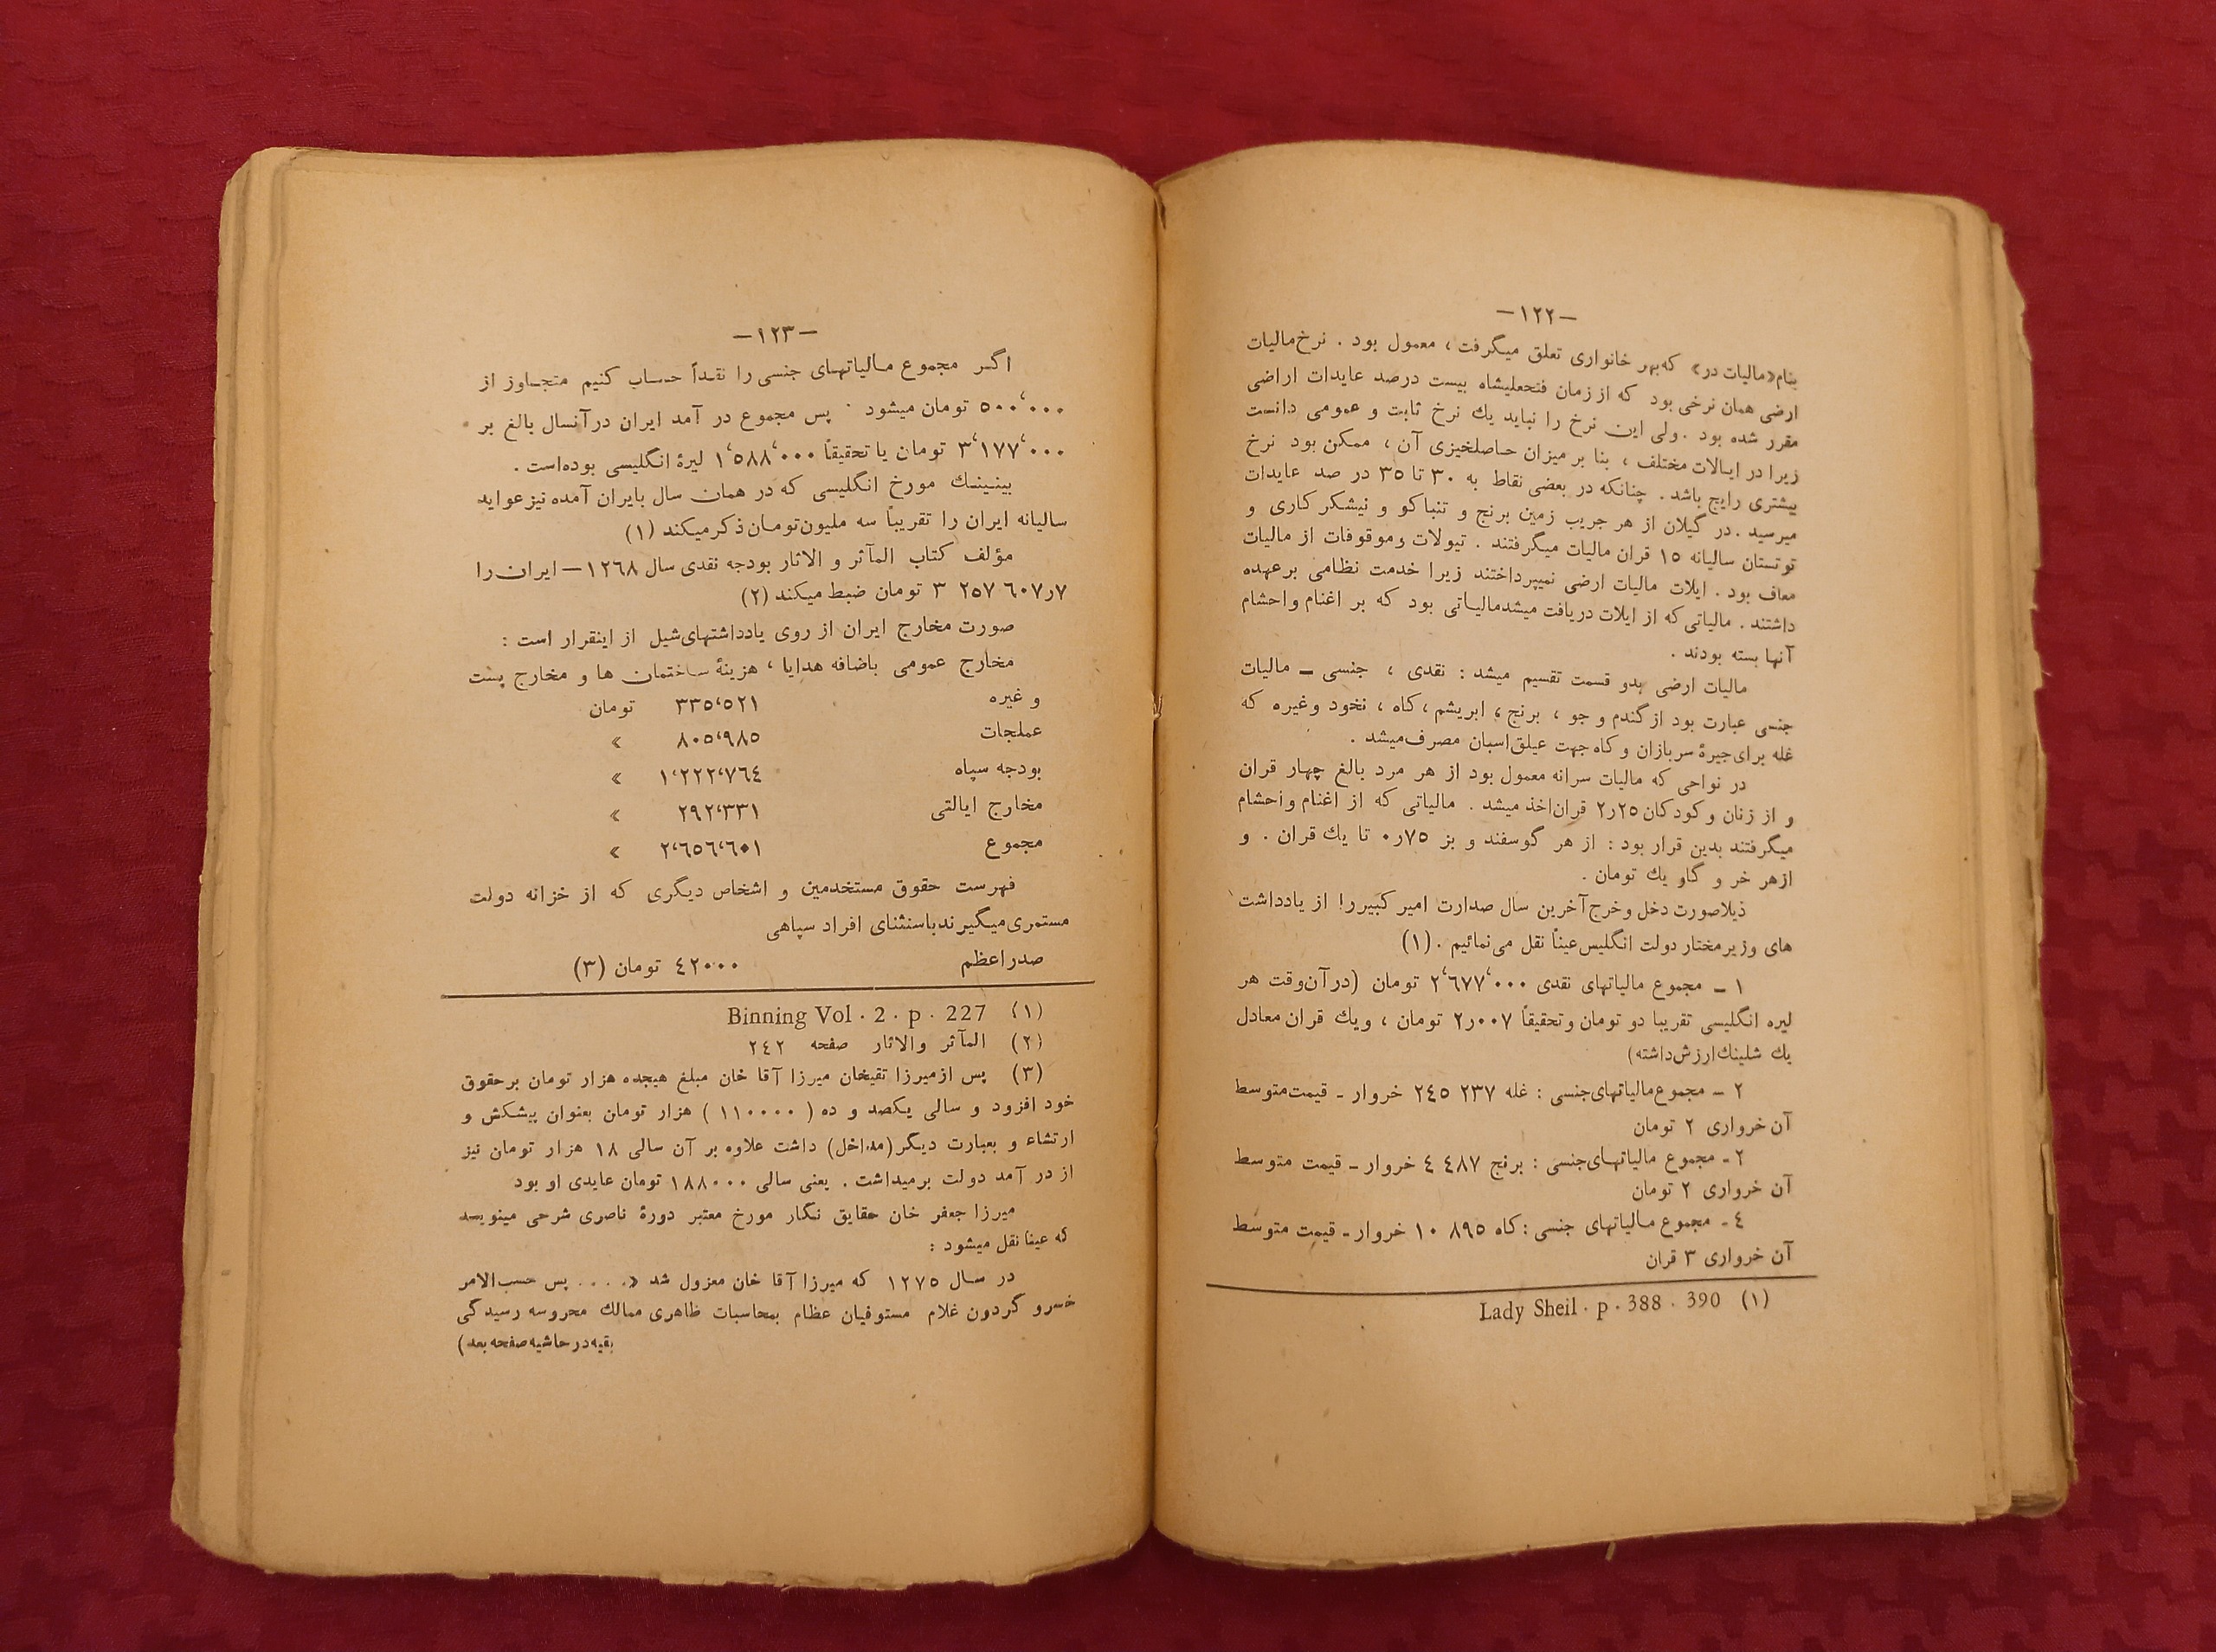 —١٢٢—
بنام«مالیات در» که‌بهر خانواری تعلق میگرفت، معمول بود . نرخ‌مالیات
ارضی همان نرخی بود که از زمان فتحعلیشاه بیست درصد عایدات اراضی
مقرر شده بود .ولی این نرخ را نباید یك نرخ ثابت و عمومی دانست
زیرا در ایالات مختلف ، بنا بر میزان حاصلخیزی آن ، ممکن بود نرخ
بیشتری رایج باشد . چنانکه در بعضی نقاط به ٣٠ تا ٣٥ در صد عایدات
میرسید .در گیلان از هر جریب زمین برنج و تنباکو و نیشکر کاری و
توتستان سالیانه ١٥ قران مالیات میگرفتند . تیولات وموقوفات از مالیات
معاف بود . ایلات مالیات ارضی نمیپرداختند زیرا خدمت نظامی برعهده
داشتند . مالیاتی‌که از ایلات دریافت میشدمالیاتی بود که بر اغنام واحشام
آنها بسته بودند .
مالیات ارضی بدو قسمت تقسیم میشد : نقدی ، جنسی ــ مالیات
جنسی عبارت بود از گندم و جو ، برنج ، ابریشم ،کاه ، نخود وغیره که
غله برای‌جیرۀ سربازان و کاه جهت عیلق‌اسبان مصرف‌میشد .
در نواحی که مالیات سرانه معمول بود از هر مرد بالغ چهار قران
و از زنان و کودکان ٢٥ر٢ قران‌اخذ میشد . مالیاتی که از اغنام واحشام
میگرفتند بدین قرار بود : از هر گوسفند و بز ٧٥ر٠ تا یك قران . و
ازهر خر و گاو یك تومان .
ذیلاصورت دخل وخرج‌آخرین سال صدارت امیر کبیررا از یادداشت
های وزیرمختار دولت انگلیس‌عیناً نقل می‌نمائیم .(١)
١ ــ مجموع مالیاتهای نقدی ٢٬٦٧٧٬٠٠٠ تومان (درآن‌وقت هر
لیره انگلیسی تقریبا دو تومان وتحقیقاً ٠٠٧ر٢ تومان ، ویك قران معادل
یك شلینك‌ارزش‌داشته)
٢ ــ مجموع‌مالیاتهای‌جنسی : غله ٢٣٧ ٢٤٥ خروار ـ قیمت‌متوسط
آن خرواری ٢ تومان
٢ـ مجموع مالیاتهای‌جنسی : برنج ٤٨٧ ٤ خروار ـ قیمت متوسط
آن خرواری ٢ تومان
٤ ـ مجموع مالیاتهای جنسی : کاه ٨٩٥ ١٠ خروار ـ قیمت متوسط
آن خرواری ٣ قران
(١) Lady Sheil . p . 388 . 390
—١٢٣—
اگر مجموع مالیاتهای جنسی را نقداً حساب کنیم متجاوز از
٥٠٠٬٠٠٠ تومان میشود . پس مجموع در آمد ایران درآنسال بالغ بر
٣٬١٧٧٬٠٠٠ تومان یا تحقیقاً ١٬٥٨٨٬٠٠٠ لیرۀ انگلیسی بوده‌است .
بینینك مورخ انگلیسی که در همان سال بایران آمده نیز عواید
سالیانه ایران را تقریباً سه ملیون‌تومان ذکر میکند (١)
مؤلف کتاب المآثر و الاثار بودجه نقدی سال ١٢٦٨— ایران را
٧ر٦٠٧ ٢٥٧ ٣ تومان ضبط میکند (٢)
صورت مخارج ایران از روی یادداشتهای‌شیل از اینقرار است :
مخارج عمومی باضافه هدایا ، هزینۀ ساختمان ها و مخارج پست
و غیره ٣٣٥٬٥٢١ تومان
عملجات ٨٠٥٬٩٨٥ »
بودجه سپاه ١٬٢٢٢٬٧٦٤ »
مخارج ایالتی ٢٩٢٬٣٣١ »
مجموع ٢٬٦٥٦٬٦٠١ »
فهرست حقوق مستخدمین و اشخاص دیگری که از خزانه دولت
مستمری‌میگیرندباستثنای افراد سپاهی
صدراعظم ٤٢٠٠٠ تومان (٣)
(١) Binning Vol . 2 . p . 227
(٢) المآثر والاثار صفحه ٢٤٢
(٣) پس ازمیرزا تقیخان میرزا آقا خان مبلغ هیجده هزار تومان برحقوق
خود افزود و سالی یکصد و ده ( ١١٠٠٠٠ ) هزار تومان بعنوان پیشکش و
ارتشاء و بعبارت دیگر(مداخل) داشت علاوه بر آن سالی ١٨ هزار تومان نیز
از در آمد دولت برمیداشت . یعنی سالی ١٨٨٠٠٠ تومان عایدی او بود
میرزا جعفر خان حقایق نگار مورخ معتبر دورۀ ناصری شرحی مینویسد
که عینا نقل میشود :
در سال ١٢٧٥ که میرزا آقا خان معزول شد «.... پس حسب‌الامر
خسرو گردون غلام مستوفیان عظام بمحاسبات ظاهری ممالك محروسه رسیدگی
بقیه‌در حاشیه‌صفحه‌بعد)